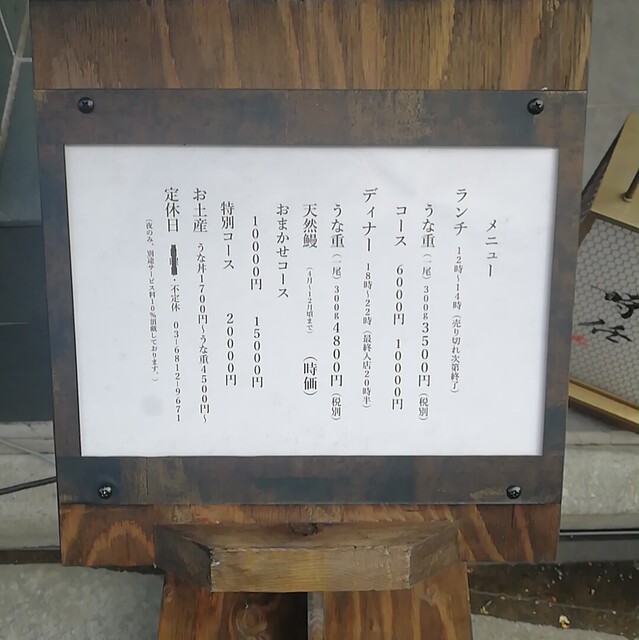 メニュー
ランチ 12時～14時（売り切れ次第終了）
うな重（一尾）300g 3500円（税別）
コース 6000円 10000円
ディナー 18時～22時（最終入店20時半）
うな重（一尾）300g 4800円（税別）
天然鰻（4月～12月頃まで）（時価）
おまかせコース
10000円 15000円
特別コース 20000円
お土産 うな丼1700円～うな重4500円～
定休日 ・不定休 03-6812-9671
（夜のみ、別途サービス料10％頂戴しております。）